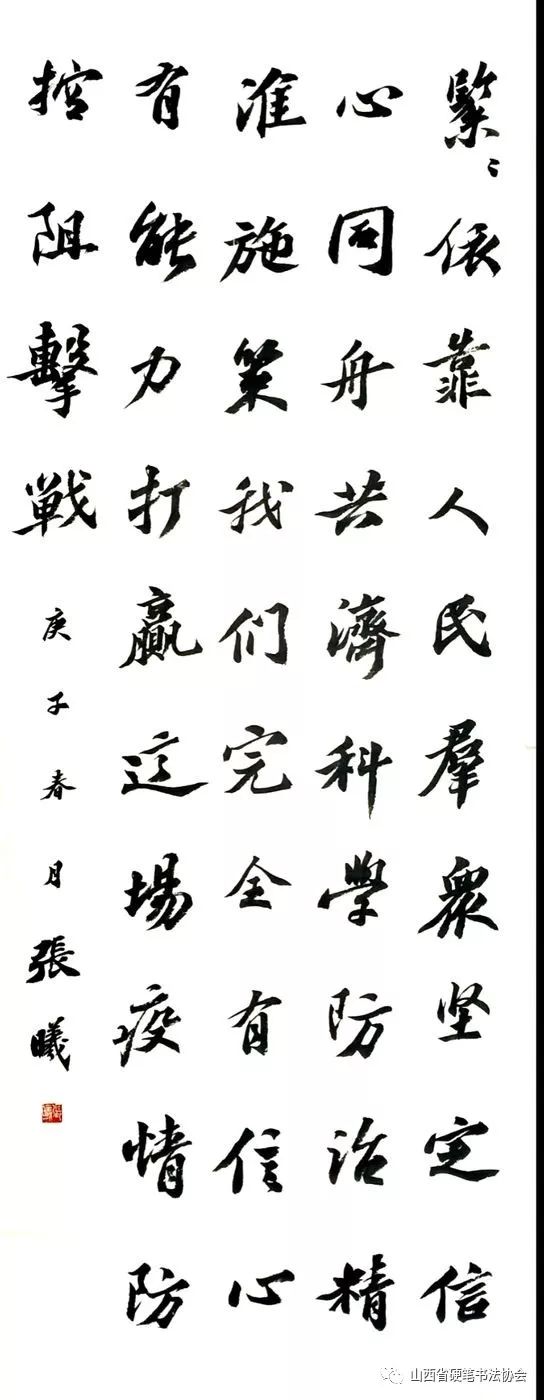 緊〻依靠人民羣衆坚定信
心同舟共濟科學防治精
准施策我们完全有信心
有能力打贏这場疫情防
控阻擊戦
庚子春月張曦
山西省硬笔书法协会